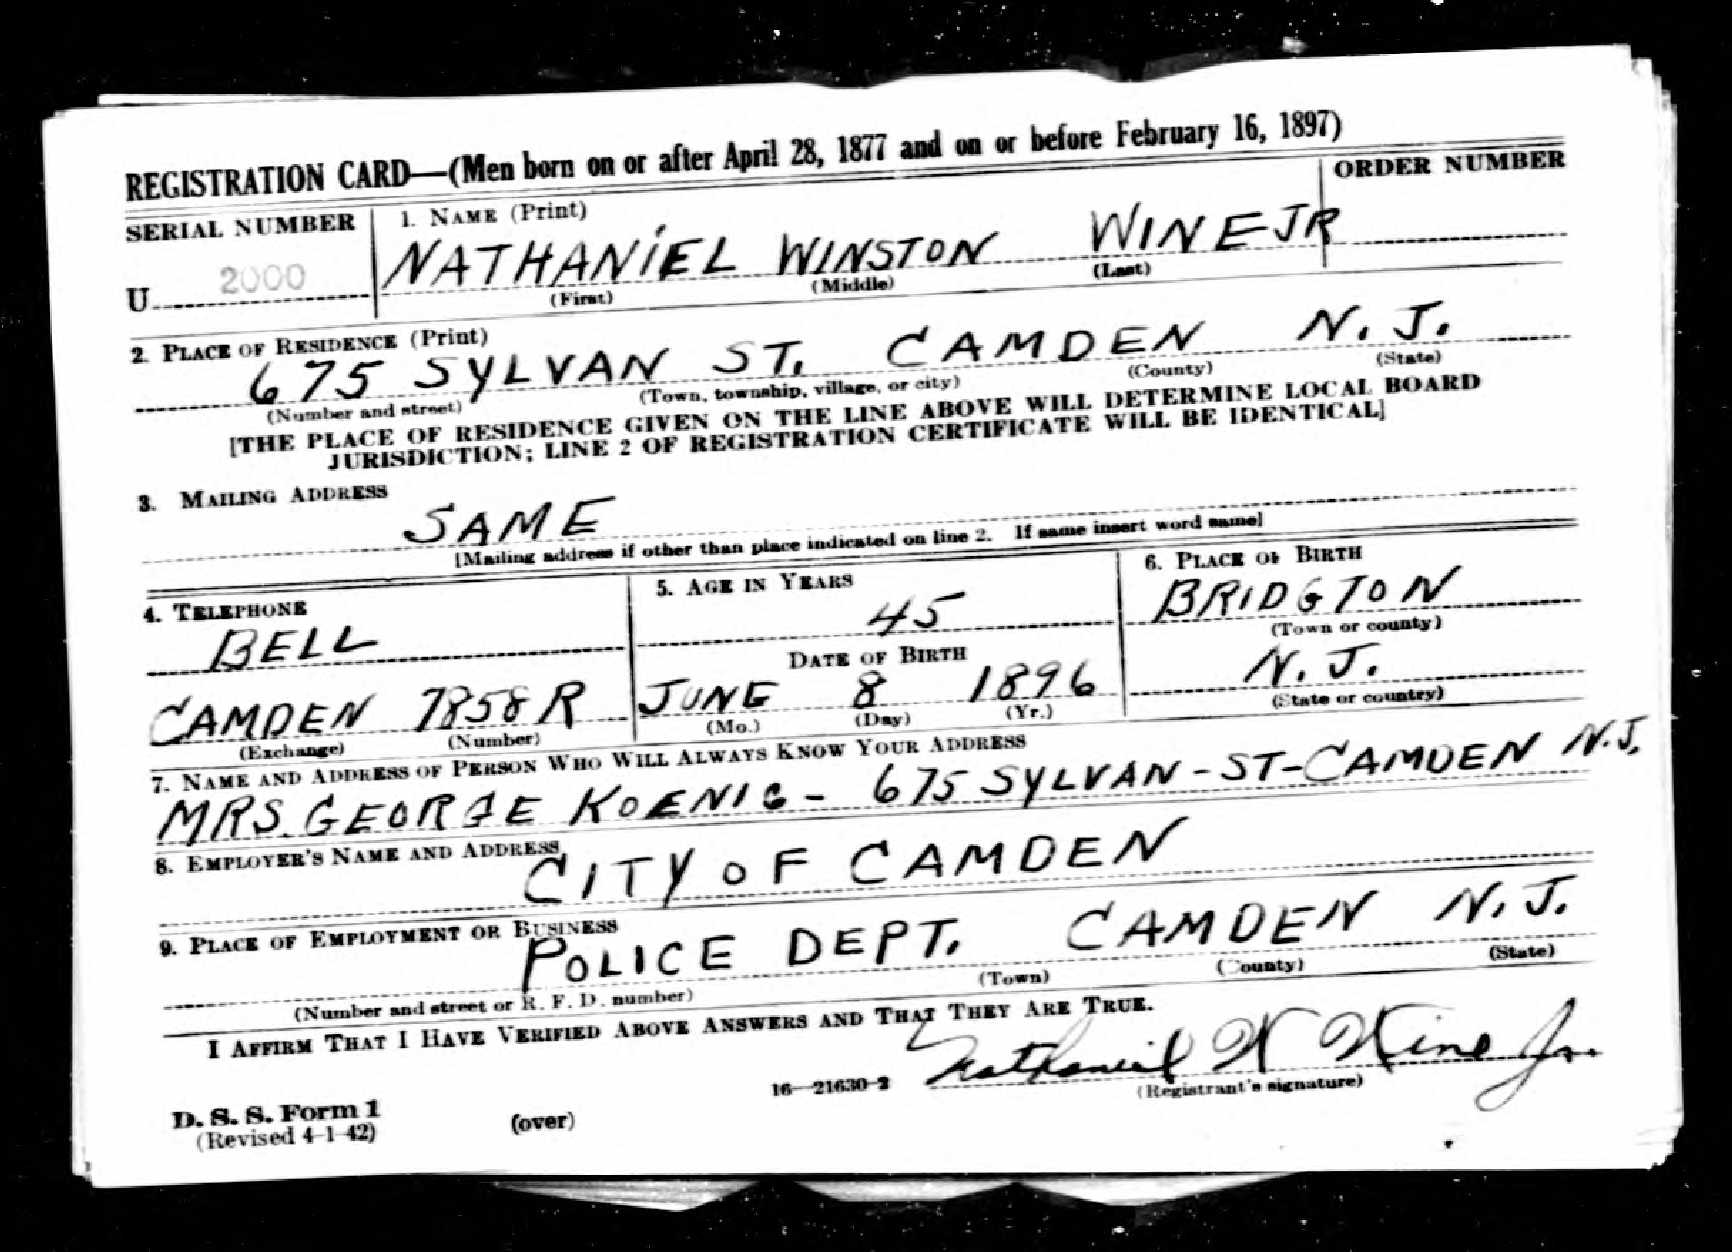 REGISTRATION CARD—(Men born on or after April 28, 1877 and on or before February 16, 1897)
SERIAL NUMBER
1. NAME (Print)
ORDER NUMBER
U 2000
NATHANIEL WINSTON WINE JR
(First) (Middle) (Last)
2. PLACE OF RESIDENCE (Print)
675 SYLVAN ST. CAMDEN N.J.
(Number and street) (Town, township, village, or city) (County) (State)
[THE PLACE OF RESIDENCE GIVEN ON THE LINE ABOVE WILL DETERMINE LOCAL BOARD
JURISDICTION; LINE 2 OF REGISTRATION CERTIFICATE WILL BE IDENTICAL]
3. MAILING ADDRESS
SAME
[Mailing address if other than place indicated on line 2. If same insert word same]
4. TELEPHONE
BELL
CAMDEN 7858R
(Exchange) (Number)
5. AGE IN YEARS
45
DATE OF BIRTH
JUNE 8 1896
(Mo.) (Day) (Yr.)
6. PLACE OF BIRTH
BRIDGTON
(Town or county)
N.J.
(State or country)
7. NAME AND ADDRESS OF PERSON WHO WILL ALWAYS KNOW YOUR ADDRESS
MRS. GEORGE KOENIG - 675 SYLVAN-ST-CAMDEN N.J.
8. EMPLOYER'S NAME AND ADDRESS
CITY OF CAMDEN
9. PLACE OF EMPLOYMENT OR BUSINESS
POLICE DEPT. CAMDEN N.J.
(Number and street or R. F. D. number) (Town) (County) (State)
I AFFIRM THAT I HAVE VERIFIED ABOVE ANSWERS AND THAT THEY ARE TRUE.
Nathaniel W Wine Jr.
D. S. S. Form 1
(Revised 4-1-42)
(over)
16—21630-2
(Registrant's signature)